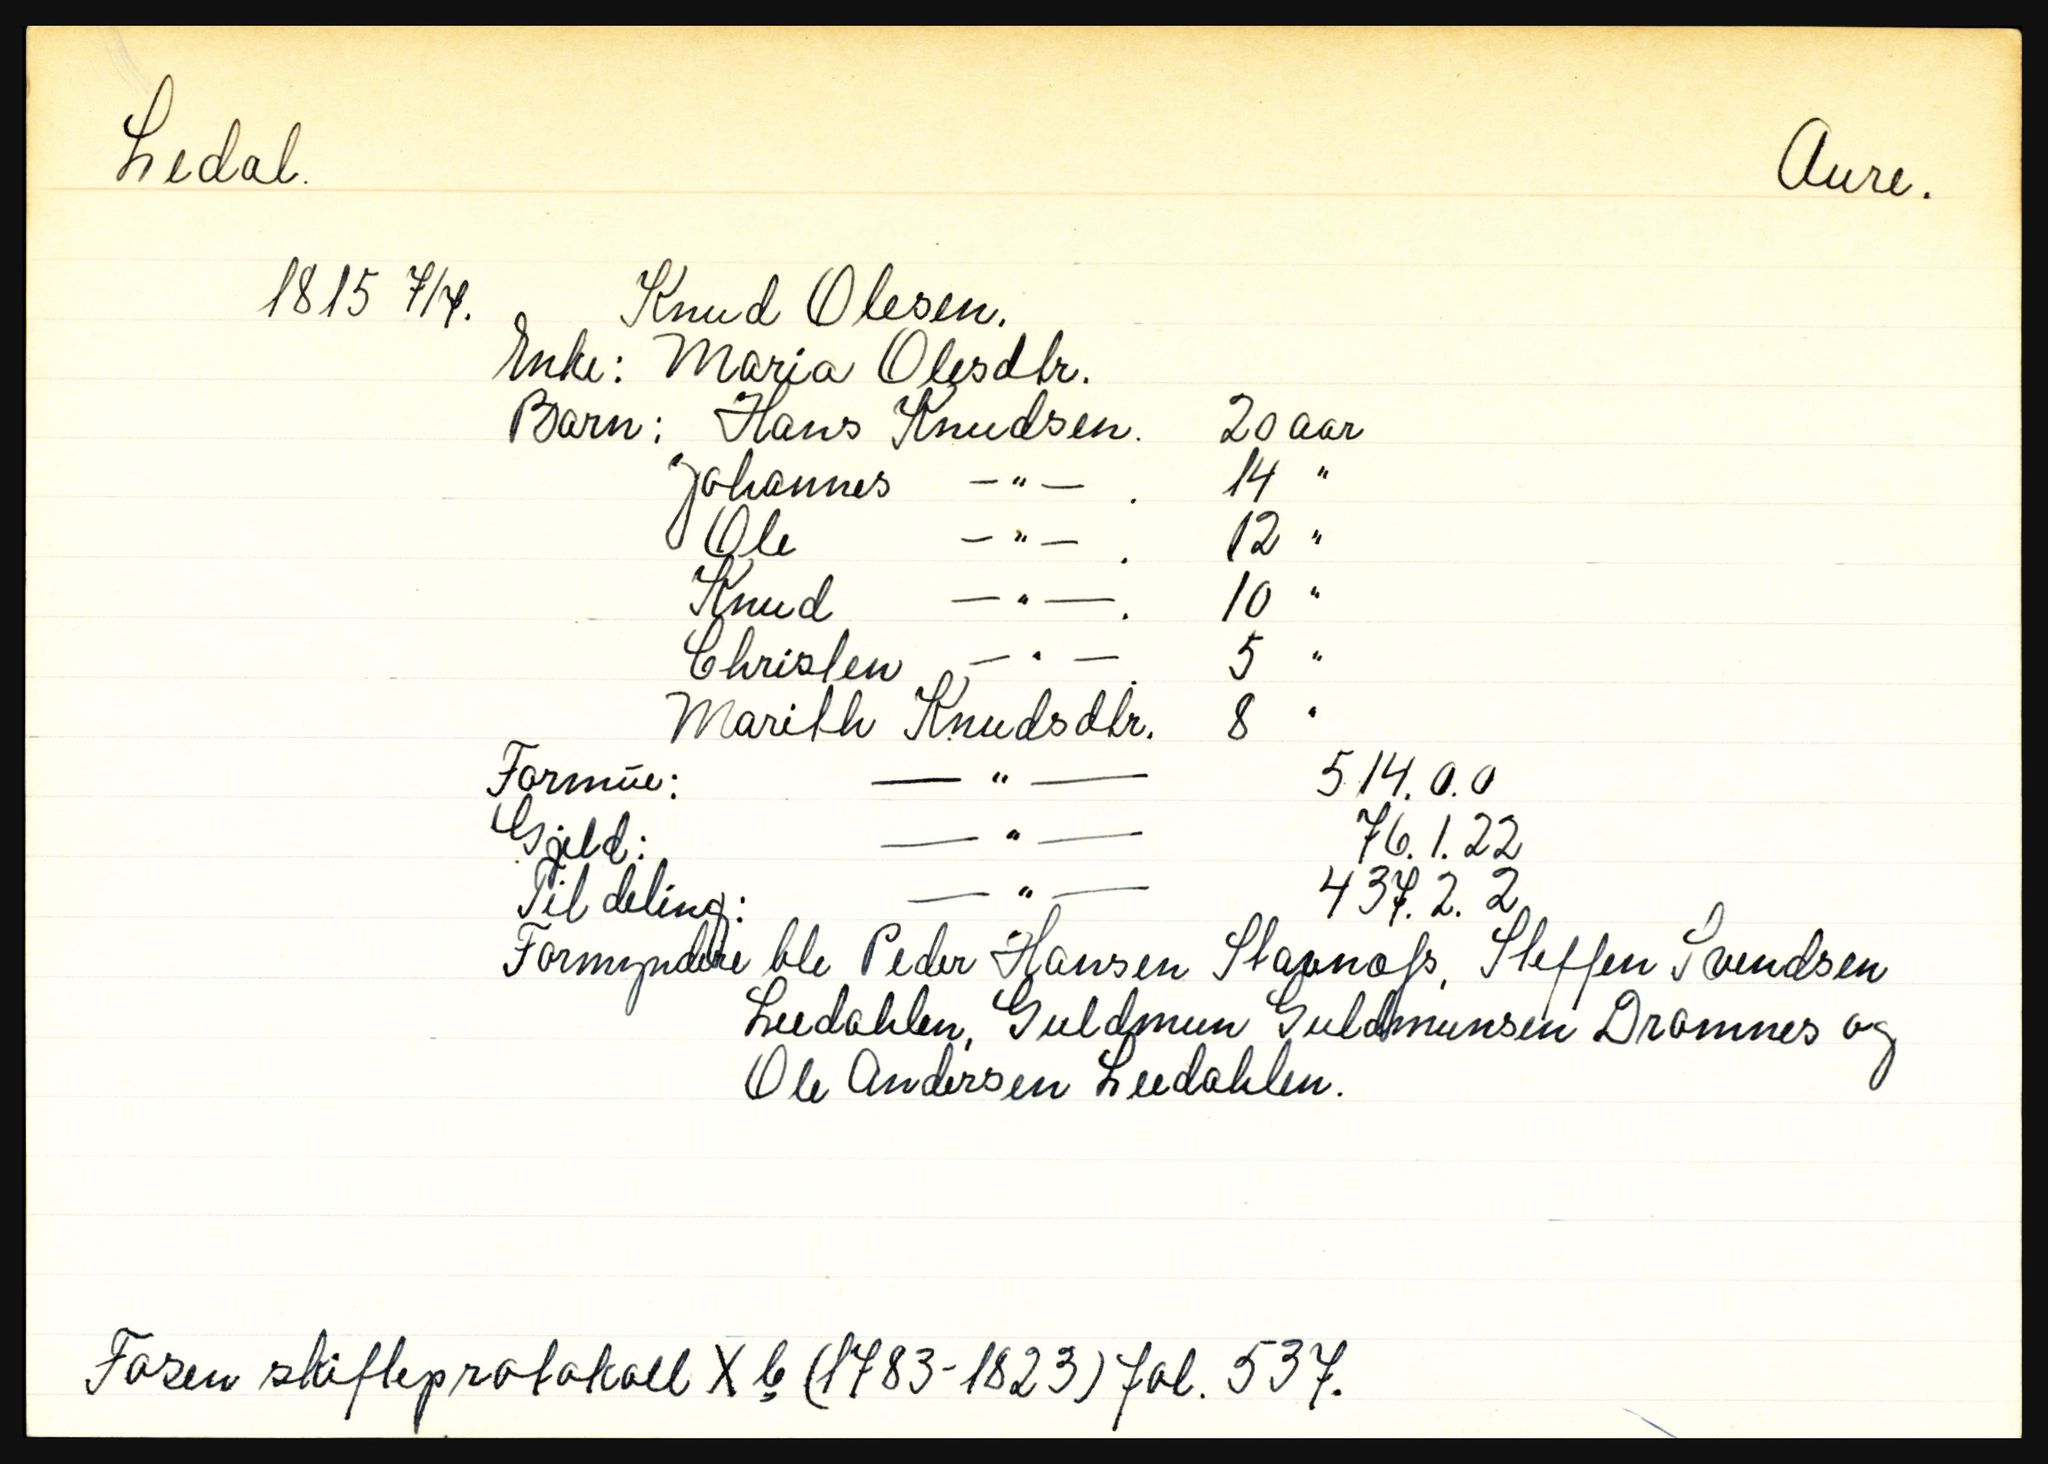 Ledal.
Aure.
1815 7/7. Knud Olesen.
Enke: Maria Olesdtr.
Barn: Hans Knudsen. 20 aar
Johannes —"— . 14 "
Ole —"— . 12 "
Knud —"— . 10 "
Christen —"— . 5 "
Marith Knudsdtr. 8 "
Formue: —"— 514.0.0
Gjeld: —"— 76.1.22
Til deling: —"— 437.2.2
Formyndere ble Peder Hansen Stavnæss, Steffen Svendsen
Leedahlen, Guldmun Guldmunsen Dromnes og
Ole Andersen Leedahlen.
Fosen skifteprotokoll X b (1783-1823) fol. 537.